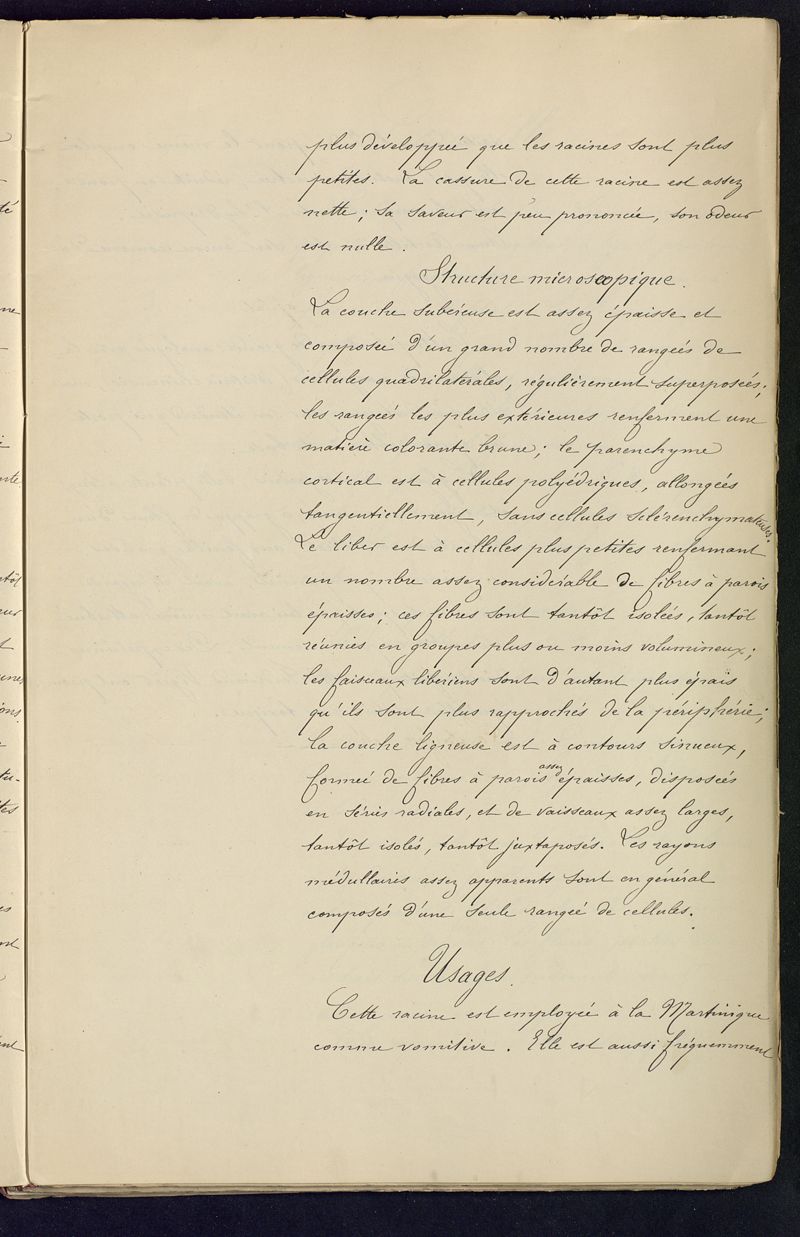 plus développée que les racines sont plus
petites. La cassure de cette racine est assez
nette ; sa saveur est peu prononcée, son odeur
est nulle.
Structure microscopique.
La couche subéreuse est assez épaisse et
composée d'un grand nombre de rangées de
cellules quadrilatérales, régulièrement superposées ;
les rangées les plus extérieures renferment une
matière colorante brune ; le parenchyme
cortical est à cellules polyédriques, allongées
tangentiellement, sans cellules sclérenchymateuses.
Le liber est à cellules plus petites renfermant
un nombre assez considérable de fibres à parois
épaisses ; ces fibres sont tantôt isolées, tantôt
réunies en groupes plus ou moins volumineux ;
les faisceaux libériens sont d'autant plus épais
qu'ils sont plus rapprochés de la périphérie ;
la couche ligneuse est à contours sinueux,
formée de fibres à parois assez épaisses, disposées
en séries radiales, et de vaisseaux assez larges,
tantôt isolés, tantôt juxtaposés. Les rayons
médullaires assez apparents sont en général
composés d'une seule rangée de cellules.
Usages.
Cette racine est employée à la Martinique
comme vomitive. Elle est aussi fréquemment